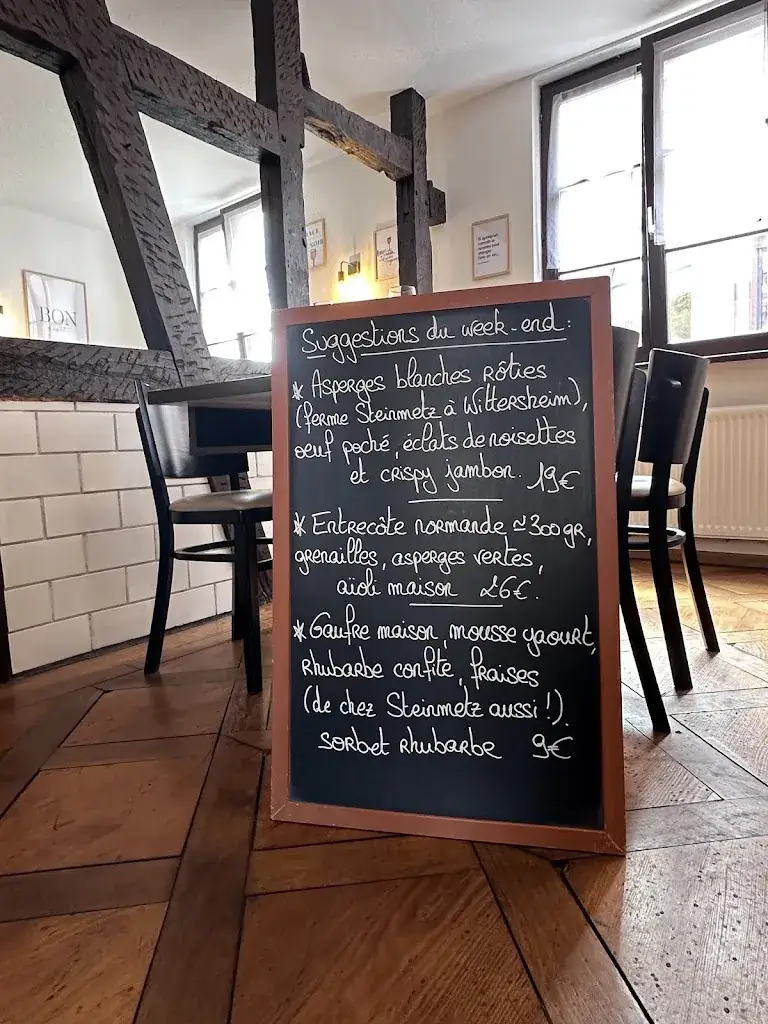 BON
Suggestions du week-end:
* Asperges blanches rôties
(ferme Steinmetz à Wittersheim),
oeuf poché, éclats de noisettes
et crispy jambon. 19€
* Entrecôte normande ≃ 300gr,
grenailles, asperges vertes,
aïoli maison 26€.
* Gaufre maison, mousse yaourt,
rhubarbe confite, fraises
(de chez Steinmetz aussi !).
sorbet rhubarbe 9€